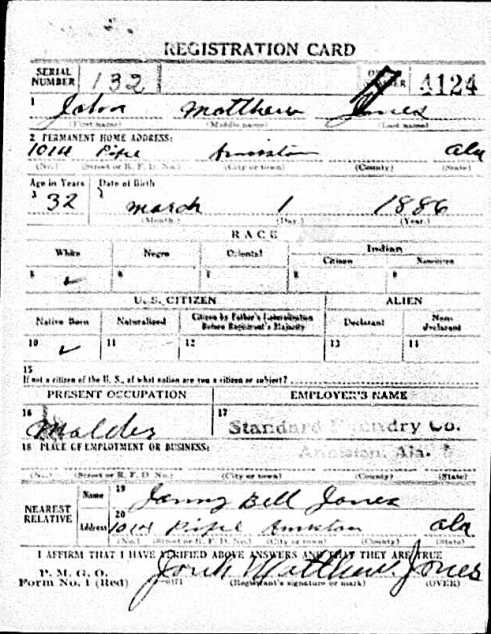 REGISTRATION CARD
SERIAL NUMBER 132 ORDER NUMBER 4124
1 John Matthew Jones
(First name) (Middle name) (Last name)
2 PERMANENT HOME ADDRESS:
1014 Pipe Anniston Ala
(No.) (Street or R. F. D. No.) (City or town) (County) (State)
Age in Years Date of Birth
3 32 March 1 1886
(Month.) (Day.) (Year.)
RACE
White Negro Oriental Indian
Citizen Noncitizen
5 ✓ 6 7 8 9
U. S. CITIZEN ALIEN
Native Born Naturalized Citizen by Father's Naturalization Before Registrant's Majority Declarant Non-declarant
10 ✓ 11 12 13 14
15
If not a citizen of the U. S., of what nation are you a citizen or subject?
PRESENT OCCUPATION EMPLOYER'S NAME
16 Molder 17 Standard Foundry Co.
18 PLACE OF EMPLOYMENT OR BUSINESS: Anniston, Ala.
(No.) (Street or R. F. D. No.) (City or town) (County) (State)
NEAREST RELATIVE Name 19 Janny Bell Jones
Address 20 1014 Pipe Anniston Ala
(No.) (Street or R. F. D. No.) (City or town) (County) (State)
I AFFIRM THAT I HAVE VERIFIED ABOVE ANSWERS AND THAT THEY ARE TRUE
P. M. G. O.
Form No. 1 (Red) Matthew Jones
(Registrant's signature or mark) (OVER)